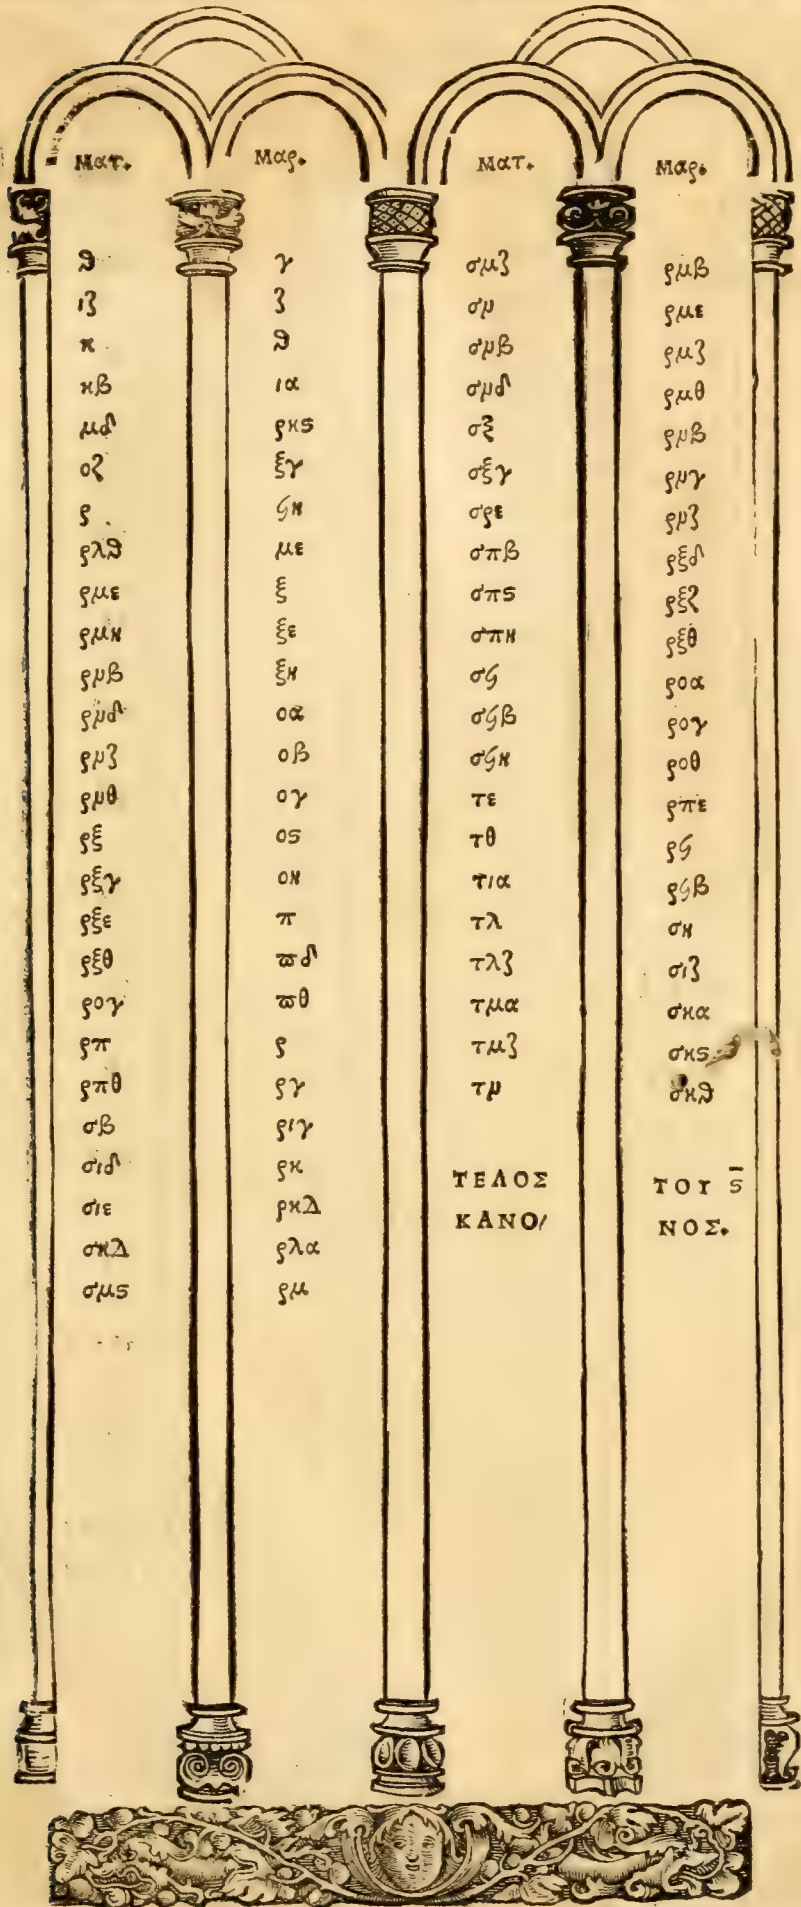 Ματ. Μαρ. Ματ. Μαρ.
θ γ σμζ ρμβ
ιζ ζ σν ρμε
κ θ σνβ ρμζ
κβ ια σνδ ρμθ
μδ ρκς σξ ρνβ
οζ ξγ σξγ ρνγ
ρ ϟη σρε ρνζ
ρλθ με σπβ ρξδ
ρμε ξ σπς ρξζ
ρμη ξε σπη ρξθ
ρνβ ξη σϟ ροα
ρνδ οα σϟβ ρογ
ρνζ οβ σϟη ροθ
ρνθ ογ τε ρπε
ρξ ος τθ ρϟ
ρξγ οη τια ρϟβ
ρξε π τλ ση
ρξθ πδ τλζ σιζ
ρογ πθ τμα σκα
ρπ ρ τμζ σκς
ρπθ ργ τν σκθ
σβ ριγ
σιδ ρκ
σιε ρκΔ
σκΔ ρλα
σμς ρμ
ΤΕΛΟΣ ΤΟΥ ς̅
ΚΑΝΟ/ ΝΟΣ.